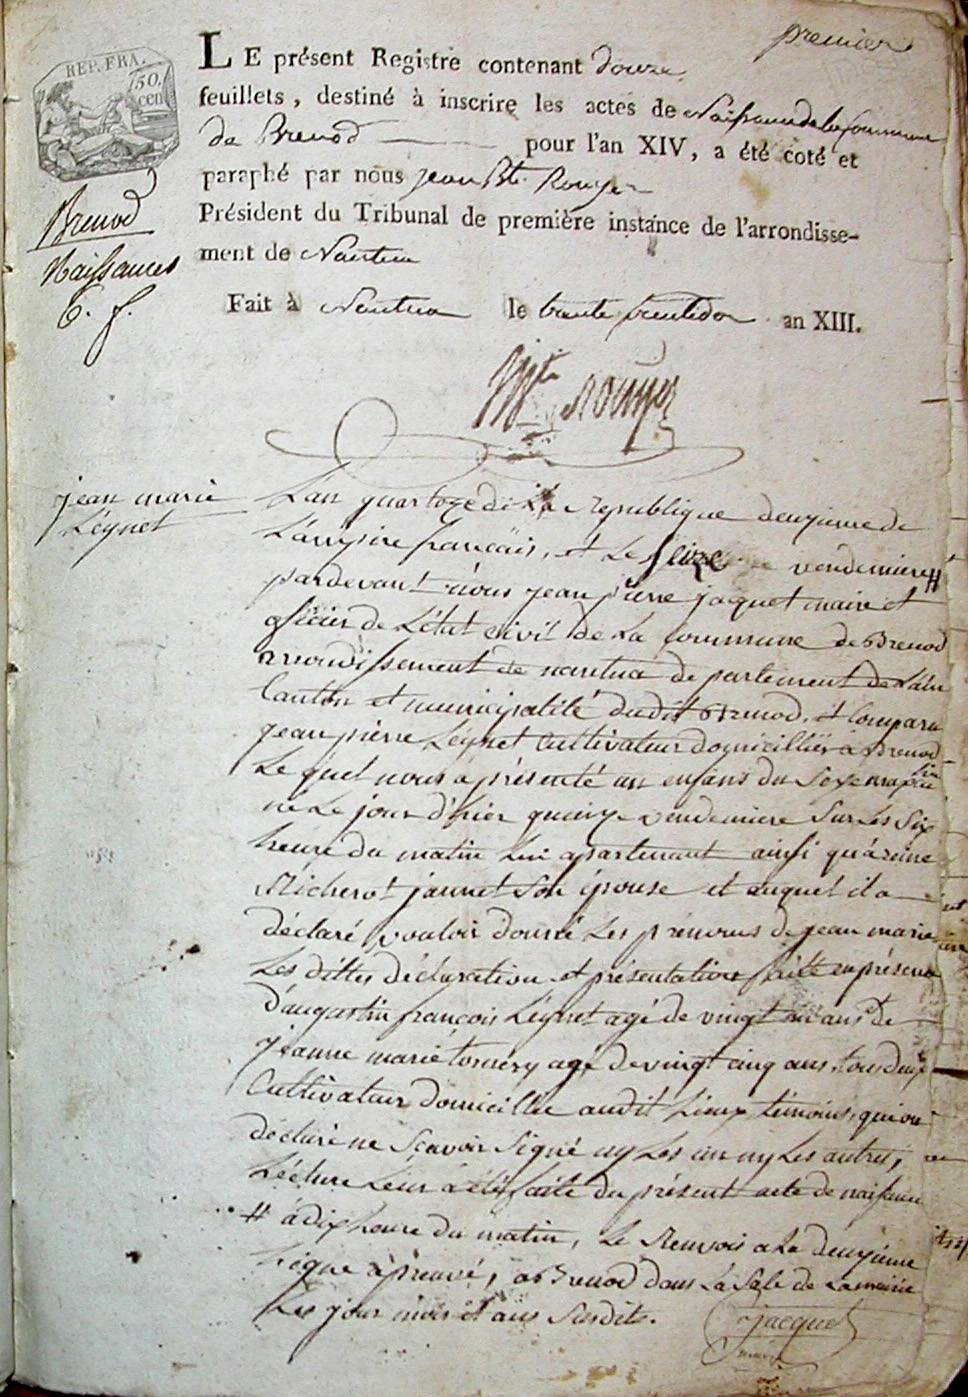 premier
REP. FRA.
50.
cen
LE présent Registre contenant douze
feuillets, destiné à inscrire les actes de Naissance de la Commune
de Brenod pour l'an XIV, a été coté et
paraphé par nous jean Bte. Rouyer
Président du Tribunal de première instance de l'arrondisse-
ment de Nantua
Fait à Nantua le trente fructidor an XIII.
Brenod
Naissances
6. f.
Rouyer
jean marie
Léynet
L'an quartoze de la Republique deuxieme de
L'ampire français, et Le Seize vendemiere #
pardevant nous jean pierre jacquet maire et
officier de L'état civil de La commune de Brenod
arrondissement de nantua departement de L'ain
Canton et municipalité dudit Brenod, et Comparu
jean pierre Léynet Cultivateur domicillier à Brenod
Le quel nous à présenté un enfans du Sexe masculin
né Le jour d'hier quinze vendemiere Sur Les Six
heure du matin Lui apartenant ainsi qu'a reine
Micherot jannet Son épouse et auquel il a
déclaré vouloir donné Les prénoms de jean marie
Les dittes déclaration et présentation faite en présence
D'augustin françois Léynet agé de vingt un ans et de
jeanne marie tornéry agé de vingt cinq ans, tous deux
Cultivateur domicillée audit Lieux témoins, qui on
déclaré ne Sçavoir Signé ny Les un ny Les autres,
Lecture Leur à été faite du présent acte de naissance
# à dix heure du matin, Le Renvois a La deuxieme
Ligne apreuvé, a Brenod dans La Sale de La mairie
Les jour mois et ans Susdits.
jacquet
maire